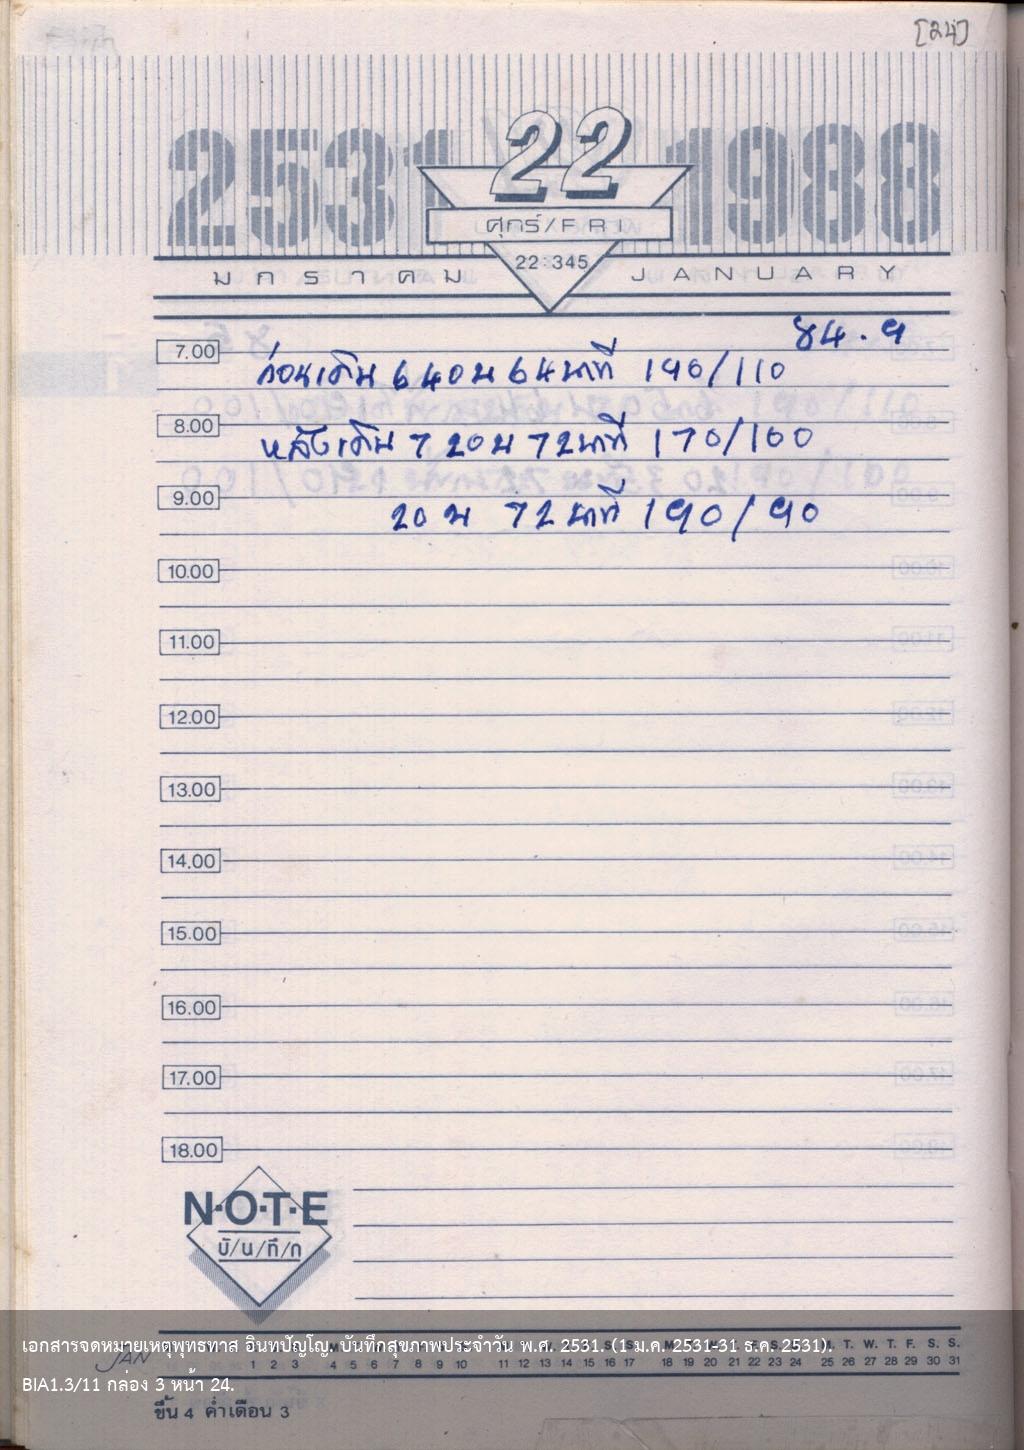 [24]
2531 22 1988
ศุกร์/FRI
22:345
มกราคม JANUARY
84.9
7.00
ก่อนเดิน 6 40 น 64 นาที 190/110
8.00
หลังเดิน 7 20 น 72 นาที 170/100
9.00
20 น 72 นาที 190/90
10.00
11.00
12.00
13.00
14.00
15.00
16.00
17.00
18.00
N·O·T·E
บั/น/ทึ/ก
เอกสารจดหมายเหตุพุทธทาส อินทปัญโญ. บันทึกสุขภาพประจำวัน พ.ศ. 2531. (1 ม.ค. 2531-31 ธ.ค. 2531).
M. T. W. T. F. S. S.
JAN 1 2 3 4 5 6 7 8 9 10 11 12 13 14 15 16 17 18 19 20 21 22 23 24 25 26 27 28 29 30 31
BIA1.3/11 กล่อง 3 หน้า 24.
ขึ้น 4 ค่ำเดือน 3